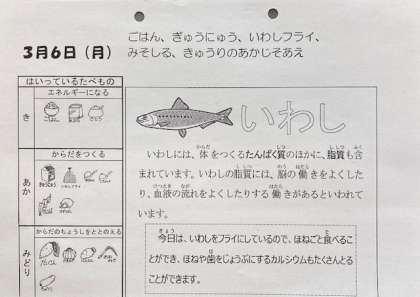 3月6日（月）
ごはん、ぎゅうにゅう、いわしフライ、
みそしる、きゅうりのあかじそあえ
はいっているたべもの
エネルギーになる
き
からだをつくる
あか
からだのちょうしをととのえる
みどり
いわし
いわしには、体をつくるたんぱく質のほかに、脂質も含
まれています。いわしの脂質には、脳の働きをよくした
り、血液の流れをよくしたりする働きがあるといわれて
います。
今日は、いわしをフライにしているので、ほねごと食べるこ
とができ、ほねや歯をじょうぶにするカルシウムもたくさんと
ることができます。